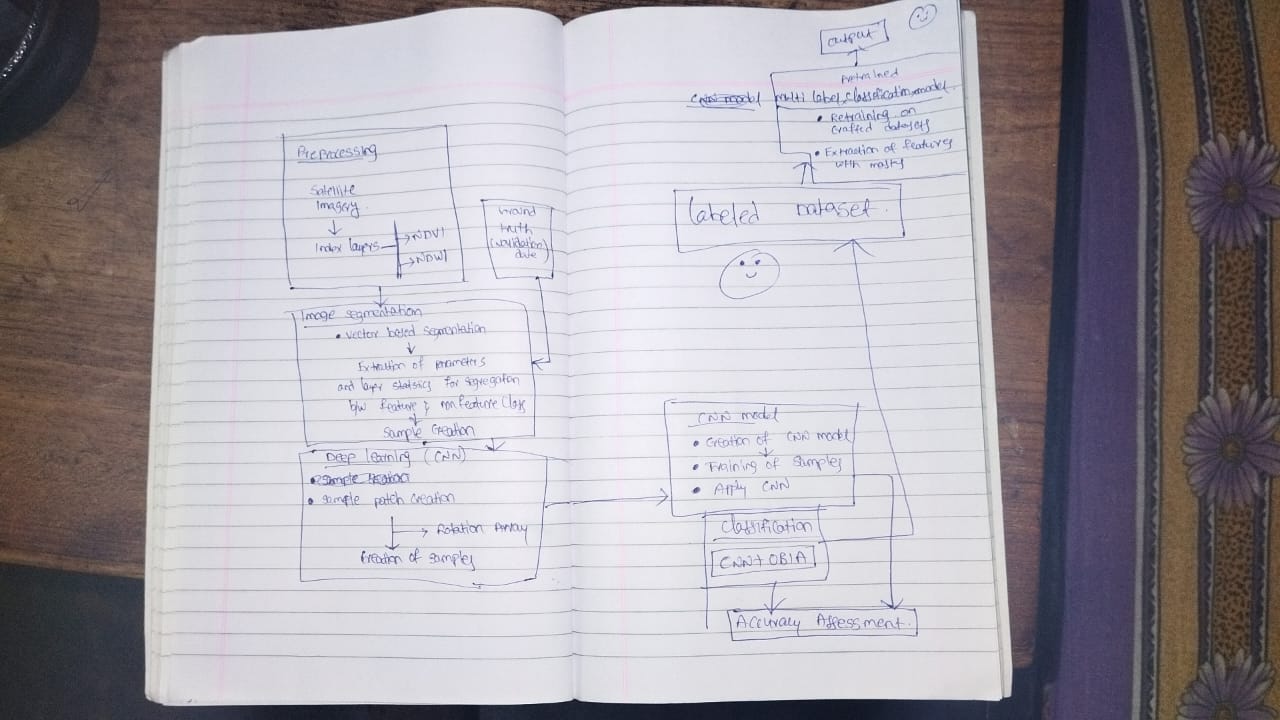 Preprocessing
Satellite
Imagery
Index layers
NDVI
NDWI
truth
(validation)
Image segmentation
• vector based segmentation
Extraction of parameters
and layer statistics for segregation
b/w feature & non feature class
Sample creation
Deep learning (CNN)
• Sample creation
• Sample patch creation
Rotation Array
Creation of samples
output
Pretrained
CNN model
multi label classification model
• Retraining on
crafted datasets
• Extraction of features
with masks
Labeled Dataset.
CNN model
• Creation of CNN model
• Training of samples
• Apply CNN
Classification
CNN + OBIA
Accuracy Assessment.